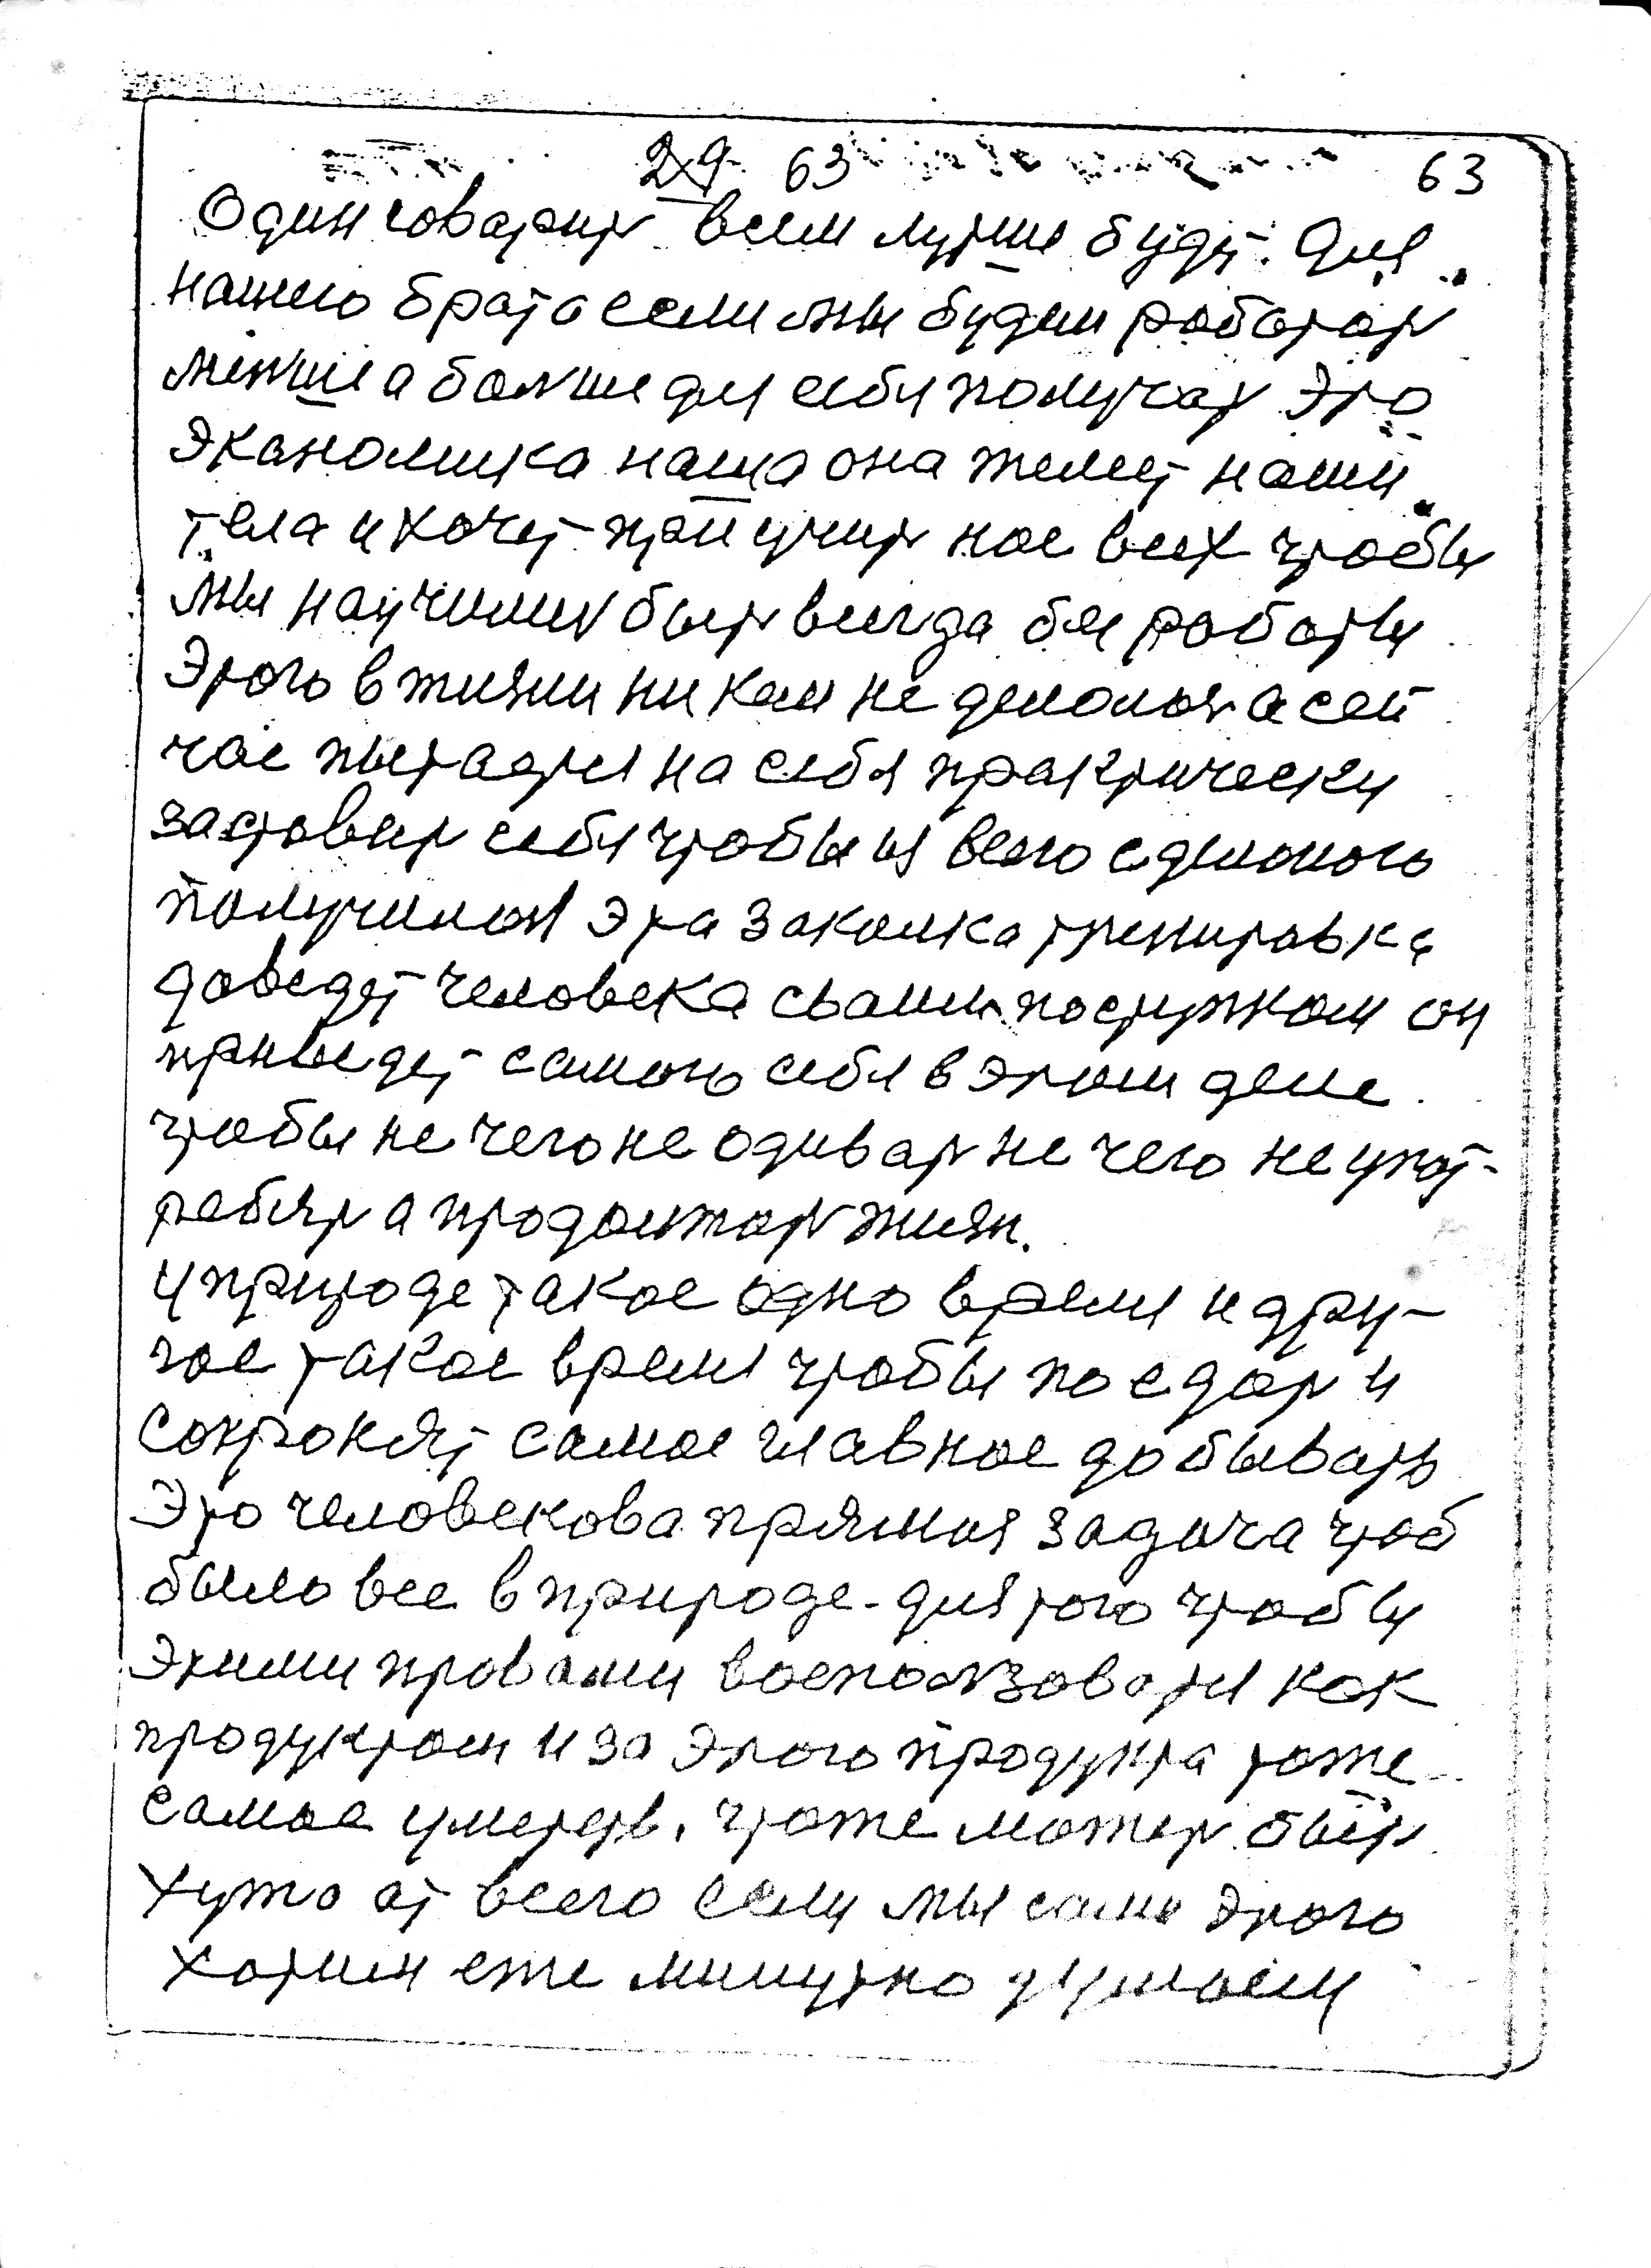 29 63 63
Один говарит всем лутше будет. Для
нашего брата если мы будем работат
менше а болше для себя получат Это
Экономика наша она желает наши
тела и хочет приучит нас всех чтобы
мы научимсь быт всегда без работы
Этого в жизни ни кем не делолося а сей
час пытатся на себя практически
заставит себя чтобы из всего сделоного
получилося Эта закалка тренировка
доведет человека своим поступком он
приведет самого себя в этом деле
чтобы не чего не одиват не чего не упот-
реблят а продолжат жизн.
У природе такое одно время и дру-
гое такое время чтобы поедат и
сохронят самое главное добывать
Это человекова прямая задача чтоб
было все в природе-для того чтобы
Этими провами воспользоватся как
продуктом и за этого продукта тоже
самое умереть, что же может быт
хуже от всего если мы сами этого
хотим еже минутно думаем